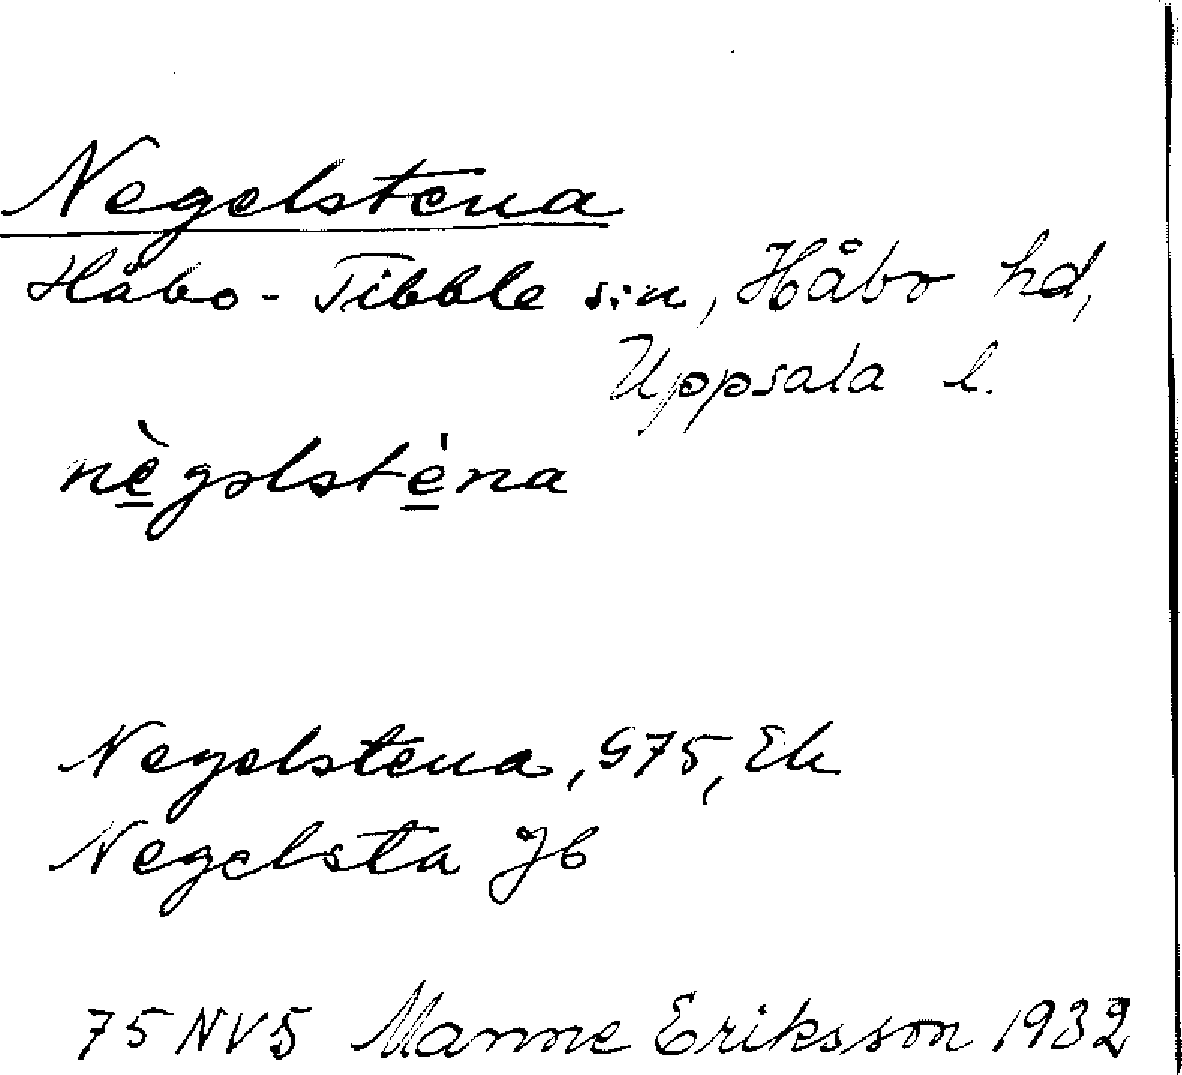 Negelstena
Håbo-Tibble sn, Håbo hd,
Uppsala l.
nè̱gəlsté̱na
Negelstena, G75, Ek
Negelsta Jb
75 NV5 Manne Eriksson 1932